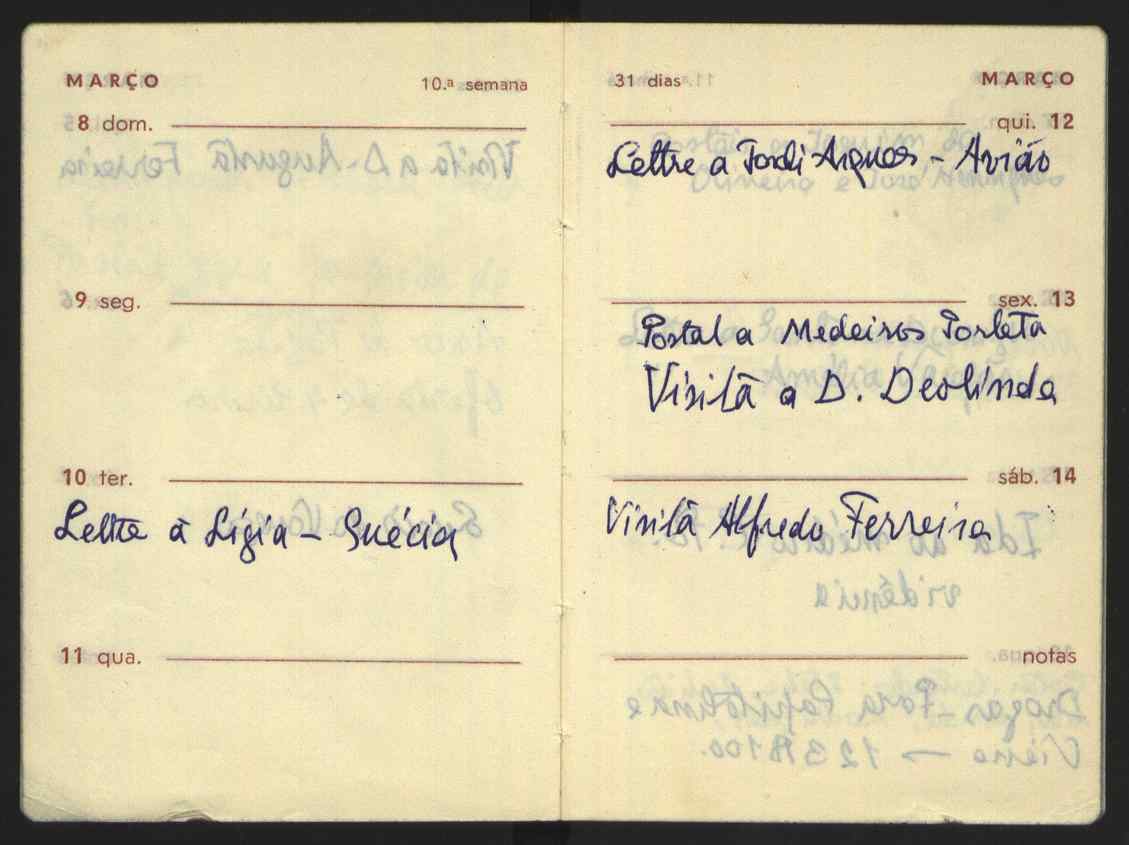 MARÇO 10.ª semana
8 dom.
9 seg.
10 ter.
Lettre à Ligia - Suécia
11 qua.
31 dias MARÇO
qui. 12
Lettre a Jordi - Avião
sex. 13
Postal a Medeiros
Visita a D. Deolinda
sáb. 14
Visita Alfredo Ferreira
notas